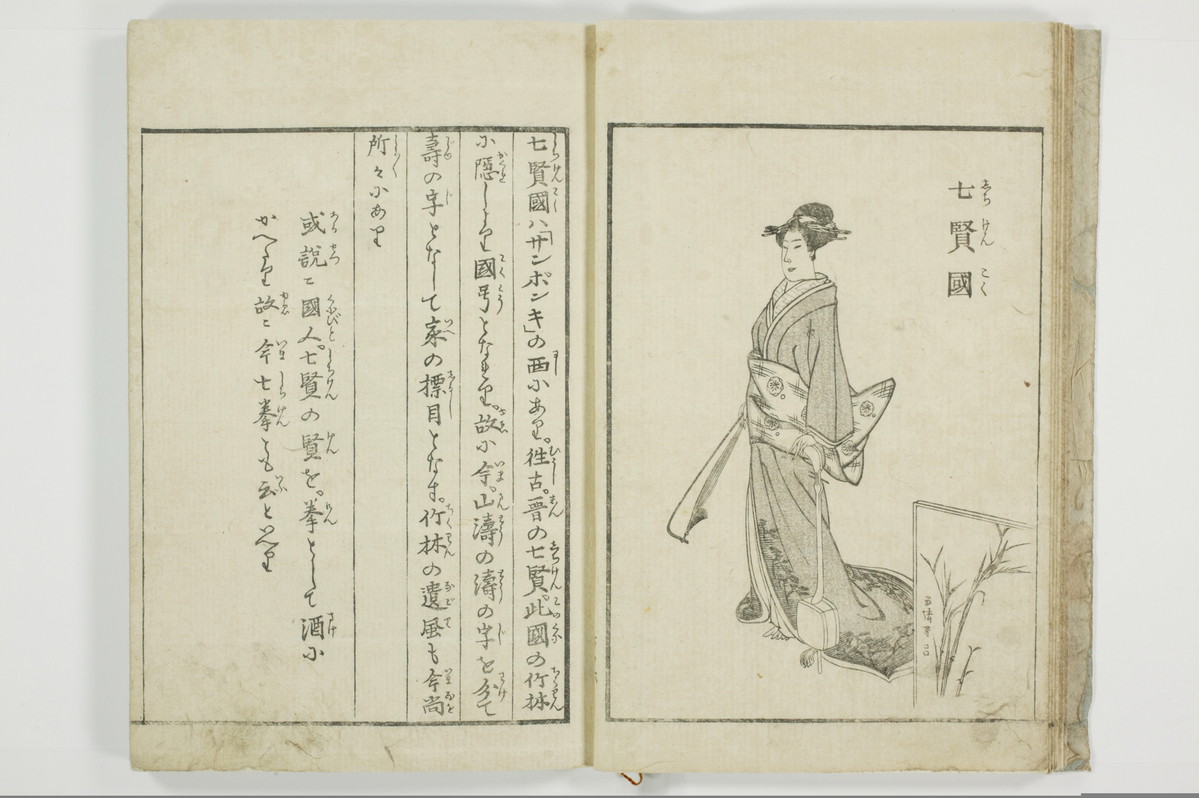 七賢國
七賢國ハ「サンポンキ」の西にあり。徃古。晋の七賢。此國の竹林
に隠しより國号となれり。故に今。山濤の濤の字を分て
壽の字となして家の標目となす。竹林の遺風も今尚
所々にあり
或説ニ國人。七賢の賢を。拳として酒に
かへたり故ニ今七拳とも云といへり